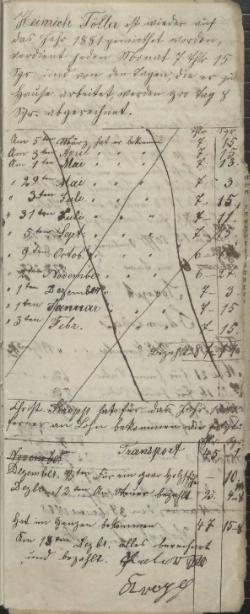 Heinrich Töller ist wieder auf
das Jahr 1881 gemiethet worden,
verdient jeden Monat 7 Thlr 15
Sgr. und von den Tagen, die er zu
Hause arbeitet, werden pro Tag 8
Sgr. abgerechnet.
Thlr Sgr.
Am 5ten März, hat er bekomm 7 15
Am 3ten April " " 7 15
Am 1ten Mai " " 7 13
" 29ten Mai " " 7 3
" 3ten Juli " " 7 15
" 31ten Juli " " 7 11
" 5ten Sept. " " 7
" 9ten Octob. " " 6
November " " 6 27
" 1ten Dezember " 7 3
" 1ten Januar " 7 15
" 3ten Febr. 7 15
Christ. Kropp hat für das Jahr
ferner an Lohn bekommen wie folgt:
Transport 45
Dezember für ein paar Holzschuhe 10
Dezbr. an Steuer bezahlt
Hat im Ganzen bekommen 47 15
Am 18ten Dezbr. alles berechnet
und bezahlt.
Kropp